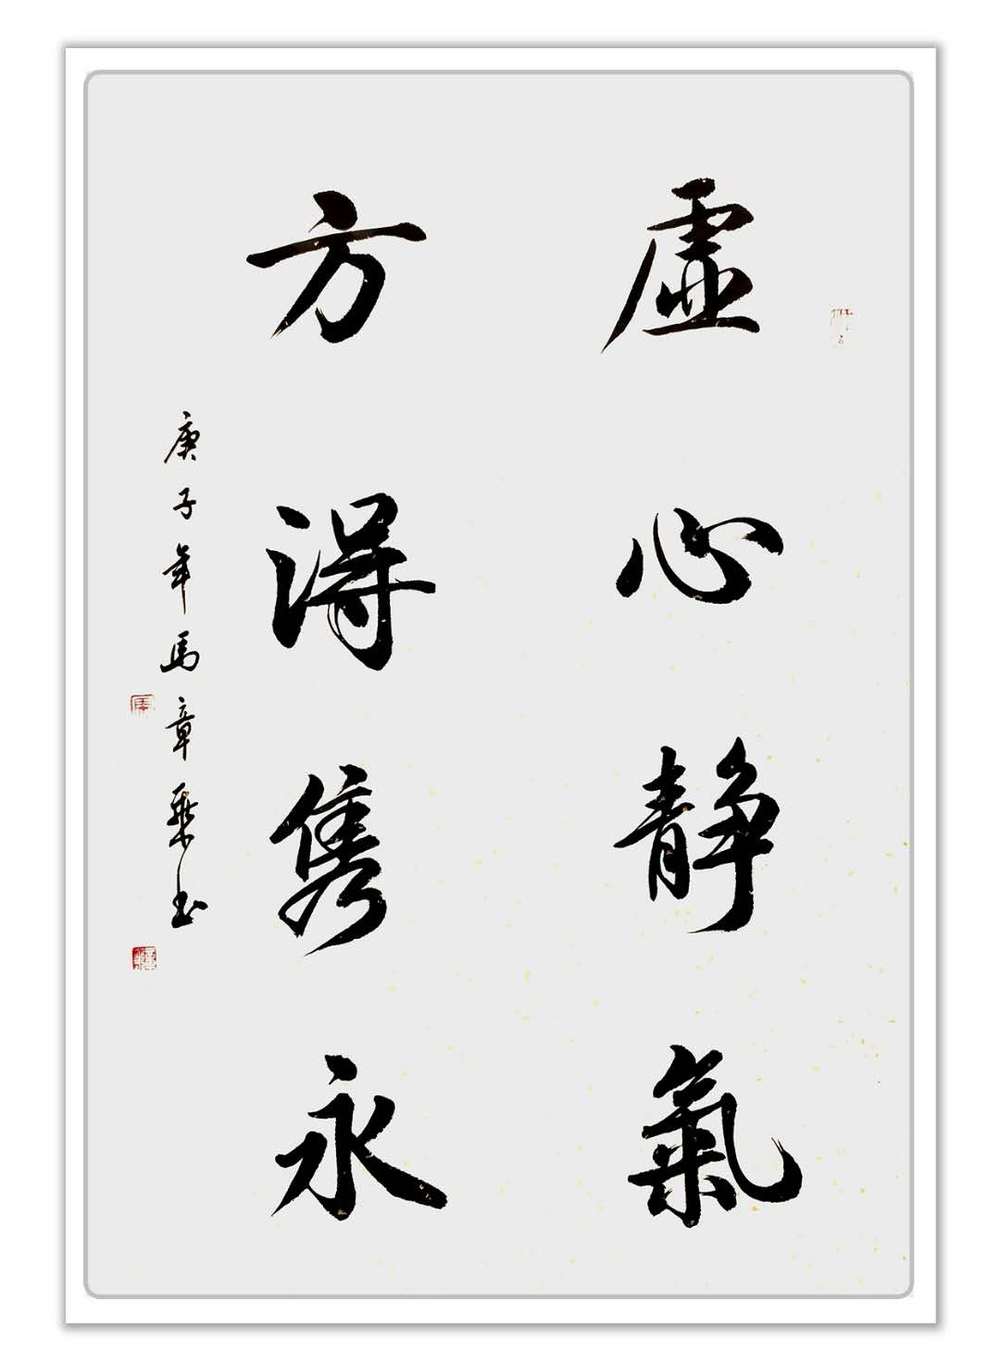 虛心靜氣
方得雋永
庚子年馬章乘书